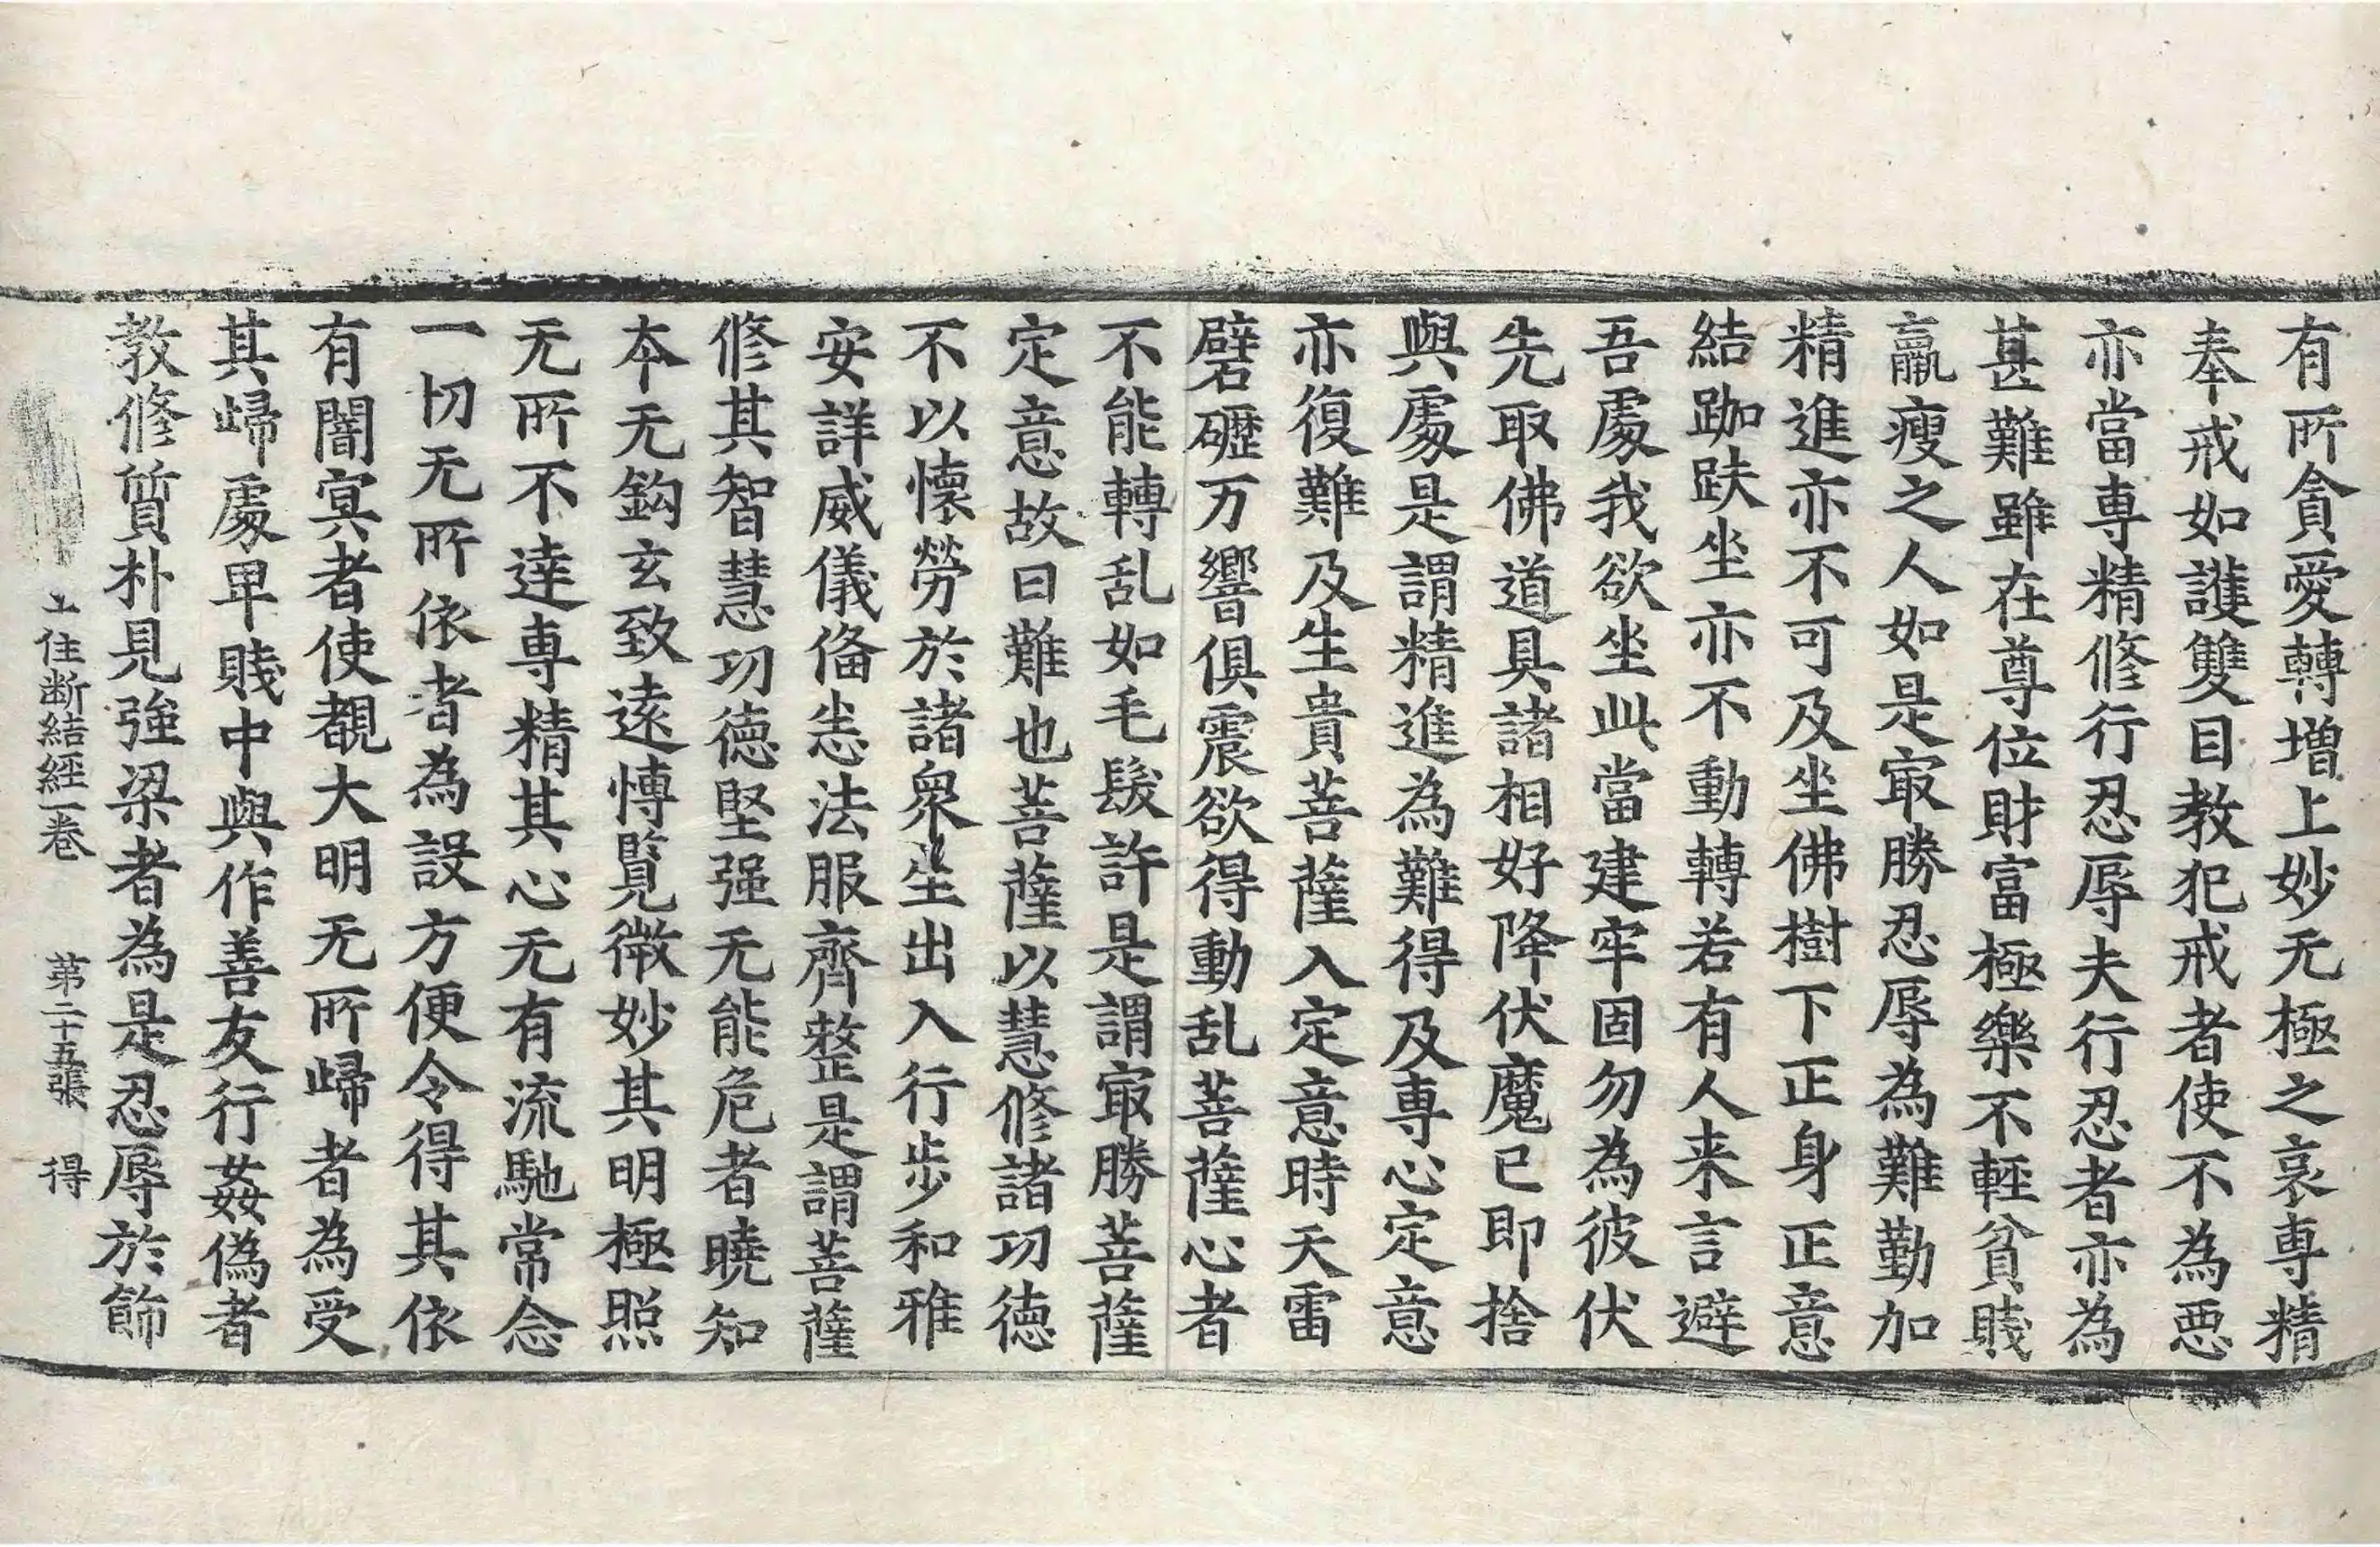 有所貪愛轉增上妙无極之哀専精
奉戒如護雙目教犯戒者使不為惡
亦當専精修行忍辱夫行忍者亦為
甚難雖在尊位財富極樂不輕貧賤
羸瘦之人如是冣勝忍辱為難勤加
精進亦不可及坐佛樹下正身正意
結跏趺坐亦不動轉若有人来言避
吾處我欲坐此當建牢固勿為彼伏
先取佛道具諸相好降伏魔已即捨
與處是謂精進為難得及専心定意
亦復難及生貴菩薩入定意時天雷
礕礰万響俱震欲得動乱菩薩心者
不能轉乱如毛髮許是謂冣勝菩薩
定意故曰難也菩薩以慧修諸功德
不以懷勞於諸衆生出入行步和雅
安詳威儀俻恙法服齊整是謂菩薩
修其智慧功德堅强无能危者曉知
本无鈎玄致遠愽覧微妙其明極照
无所不達専精其心无有流馳常念
一切无所依者為設方便令得其依
有闇冥者使覩大明无所歸者為受
其歸處卑賤中與作善友行姦偽者
教修質朴見強梁者為是忍辱於飾
住断結經一卷　第二十五張　得